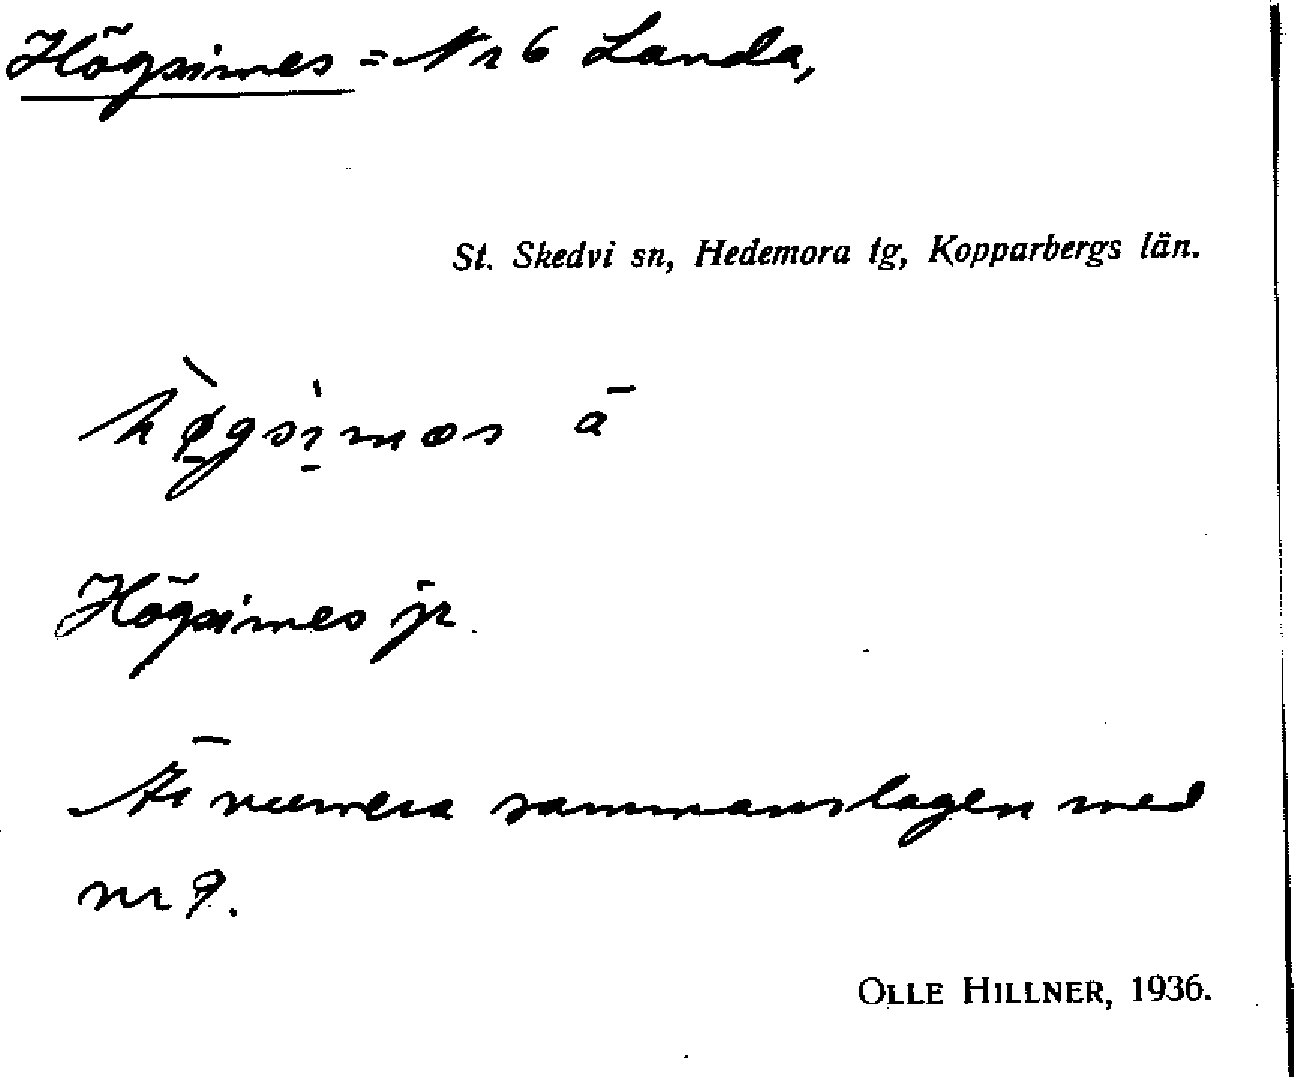 Högsimes = Nr 6 Landa,
St. Skedvi sn, Hedemora tg, Kopparbergs län.
hø̀gsìmos ā
Högsimes jr.
Är numera sammanslagen med
nr 9.
OLLE HILLNER, 1936.